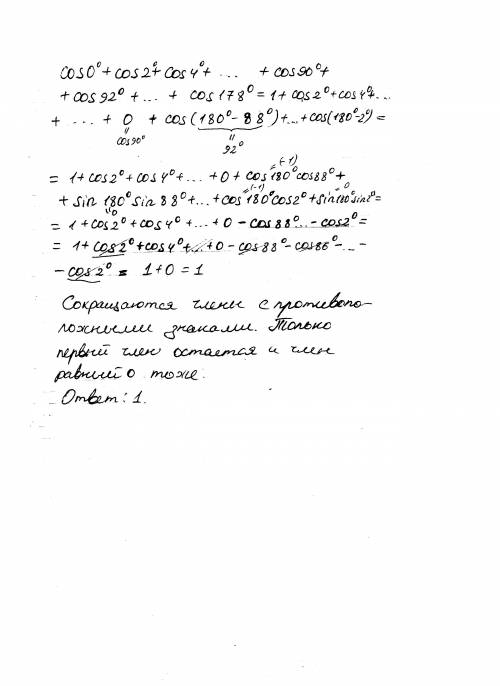 cos0° + cos2° + cos4° + ... + cos90° +
+ cos92° + ... + cos178° = 1 + cos2° + cos4° + ...
+ ... + 0 + cos(180° - 88°) + ... + cos(180° - 2°) =
cos90°
92°
(-1)
= 1 + cos2° + cos4° + ... + 0 + cos180°cos88° +
(-1) 0
+ sin180°sin88° + ... + cos180°cos2° + sin180°sin2° =
0
= 1 + cos2° + cos4° + ... + 0 - cos88° ... - cos2° =
= 1 + cos2° + cos4° + ... + 0 - cos88° - cos86° - ... -
- cos2° = 1 + 0 = 1
Сокращаются члены с противопо-
ложными знаками. Только
первый член остается и член
равный 0 тоже.
Ответ: 1.